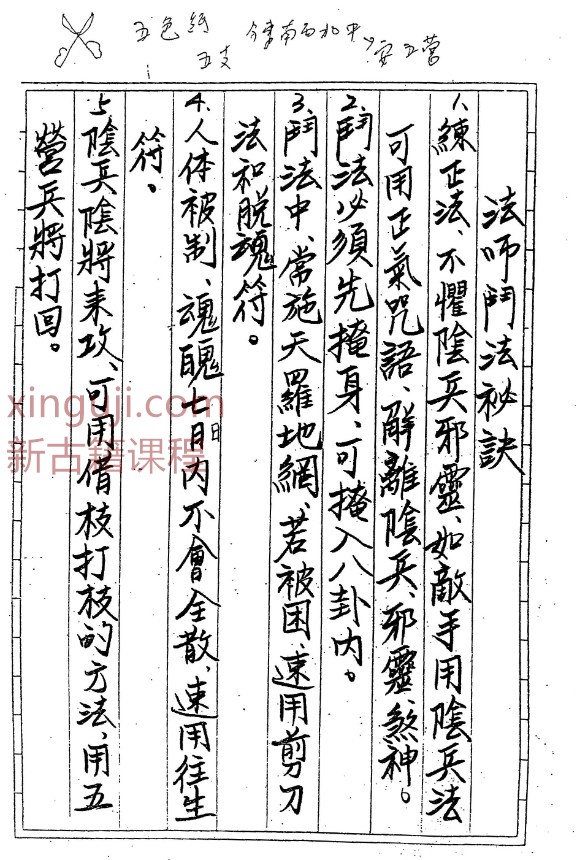 五色紙
五支
東南西北中
安五營
法師鬥法祕訣
1、練正法、不懼陰兵邪靈、如敵手用陰兵法
可用正氣咒語、解離陰兵、邪靈、煞神。
2、鬥法必須先掩身、可掩入八卦內。
3、鬥法中、常施天羅地網、若被困、速用剪刀
法和脫魂符。
4、人体被制、魂魄七日內不會全散、速用往生
符。
5、陰兵陰將來攻、可用借枝打枝的方法、用五
營兵將打回。
xinguji.com
新古籍课程